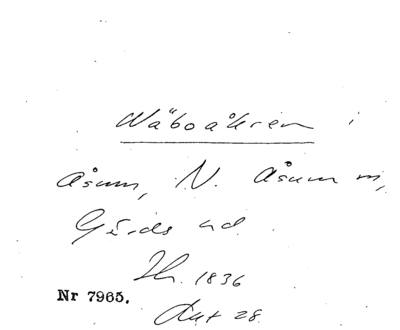 Wäboåkren i
Åsum, N. Åsum sn,
Gärds hd.
Sk. 1836
Nr 7965.
Akt 28.